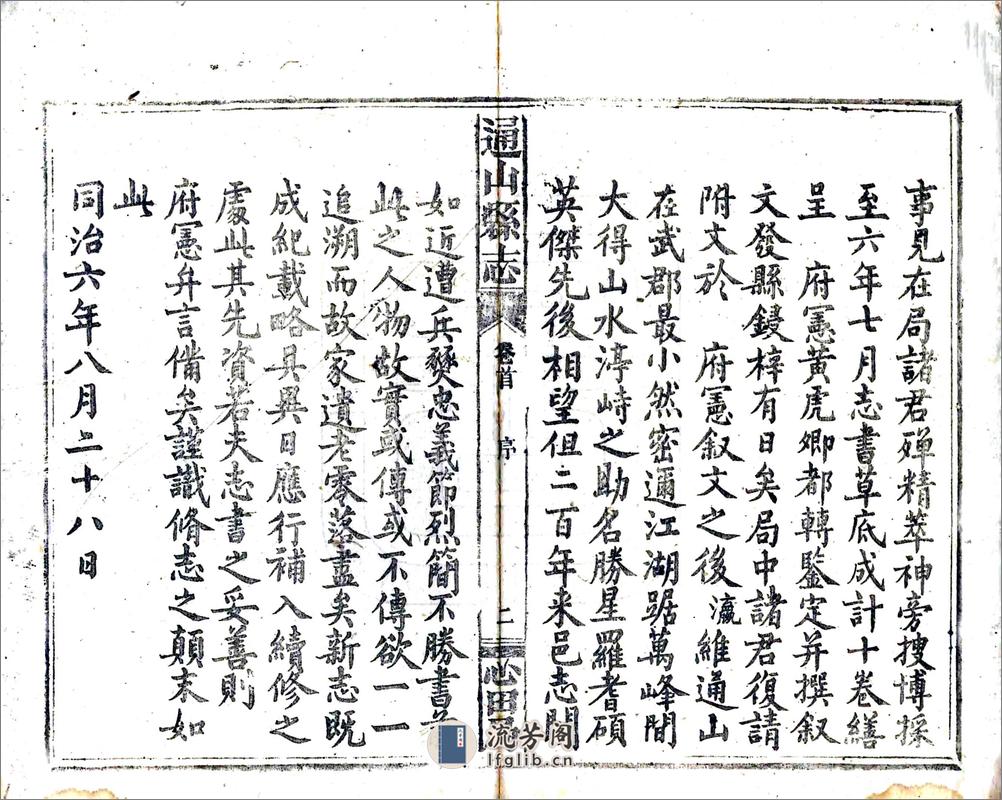 事見在局諸君殫精萃神旁搜博採
至六年七月志書草底成計十卷繕
呈　府憲黃虎卿都轉鑒定并撰叙
文發縣鋟梓有日矣局中諸君復請
附文於　府憲叙文之後瀛維通山
在武郡最小然密邇江湖踞萬峰間
大得山水渟峙之助名勝星羅耆碩
英傑先後相望但二百年来邑志闕
通山縣志
卷首　序
二
心田
如近遭兵燹忠義節烈簡不勝書
此之人物故實或傳或不傳欲一一
追溯而故家遺老零落盡矣新志既
成紀載略具異日應行補入續修之
處此其先資若夫志書之妥善則
府憲弁言備矣謹識脩志之顛末如
此
同治六年八月二十八日
流芳阁
lfglib.cn